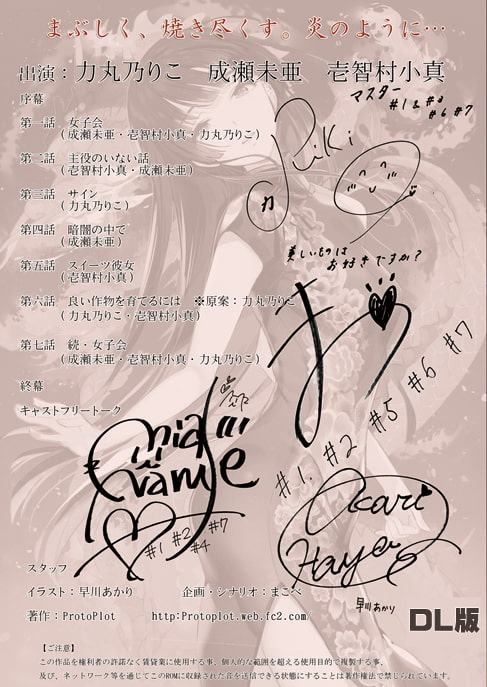 まぶしく、焼き尽くす。炎のように…
出演：力丸乃りこ　成瀬未亜　壱智村小真
マスター
#1 #3
#6 #7
序幕
第一話　女子会
（成瀬未亜・壱智村小真・力丸乃りこ）
第二話　主役のいない話
（壱智村小真・成瀬未亜）
Riki
力
第三話　サイン
（力丸乃りこ）
第四話　暗闇の中で
（成瀬未亜）
美しいものは
お好きですか？
第五話　スイーツ彼女
（壱智村小真）
第六話　良い作物を育てるには　※原案：力丸乃りこ
（力丸乃りこ・壱智村小真）
第七話　続・女子会
（成瀬未亜・壱智村小真・力丸乃りこ）
終幕
キャストフリートーク
#1. #2 #5 #6 #7
#1 #2 #7
#4
Akari
Haya
早川あかり
スタッフ
イラスト：早川あかり　企画・シナリオ：まこべ
著作：ProtoPlot　http:Protoplot.web.fc2.com/
DL版
【ご注意】
この作品を権利者の許諾なく賃貸業に使用する事、個人的な範囲を超える使用目的で複製する事、
及び、ネットワーク等を通じてこのROMに収録された音を送信できる状態にすることは著作権法で禁じられています。